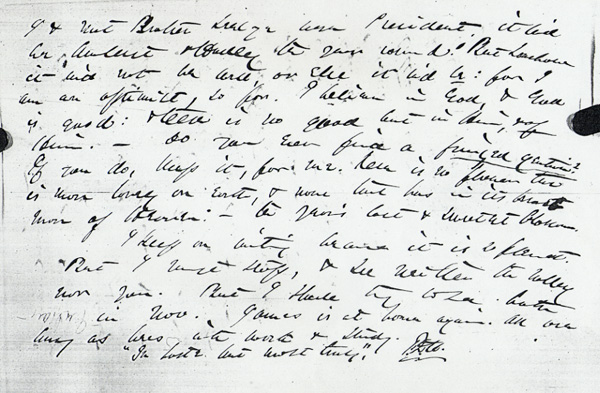 I & that Brother were President, it wd
be Amherst & the year round! But
it will not be and or else it wd be: for I
am an optimist, so far. I believe in God, & God
is good: & there is no good but in Him, & of
Him. — Do you ever find a fringed gentian?
If you do, keep it, for me. there is no flower that
is more lovely on Earth, & none that has in its heart
more of Heaven: — the year's last & sweetest blossom.
I keep on writing because it is so pleasant.
But I must stop, & see neither the valley
nor you. But I shall try to see both
in Nov. James is at home again. All are
busy as bees, with work & study.
"In haste but most truly,"